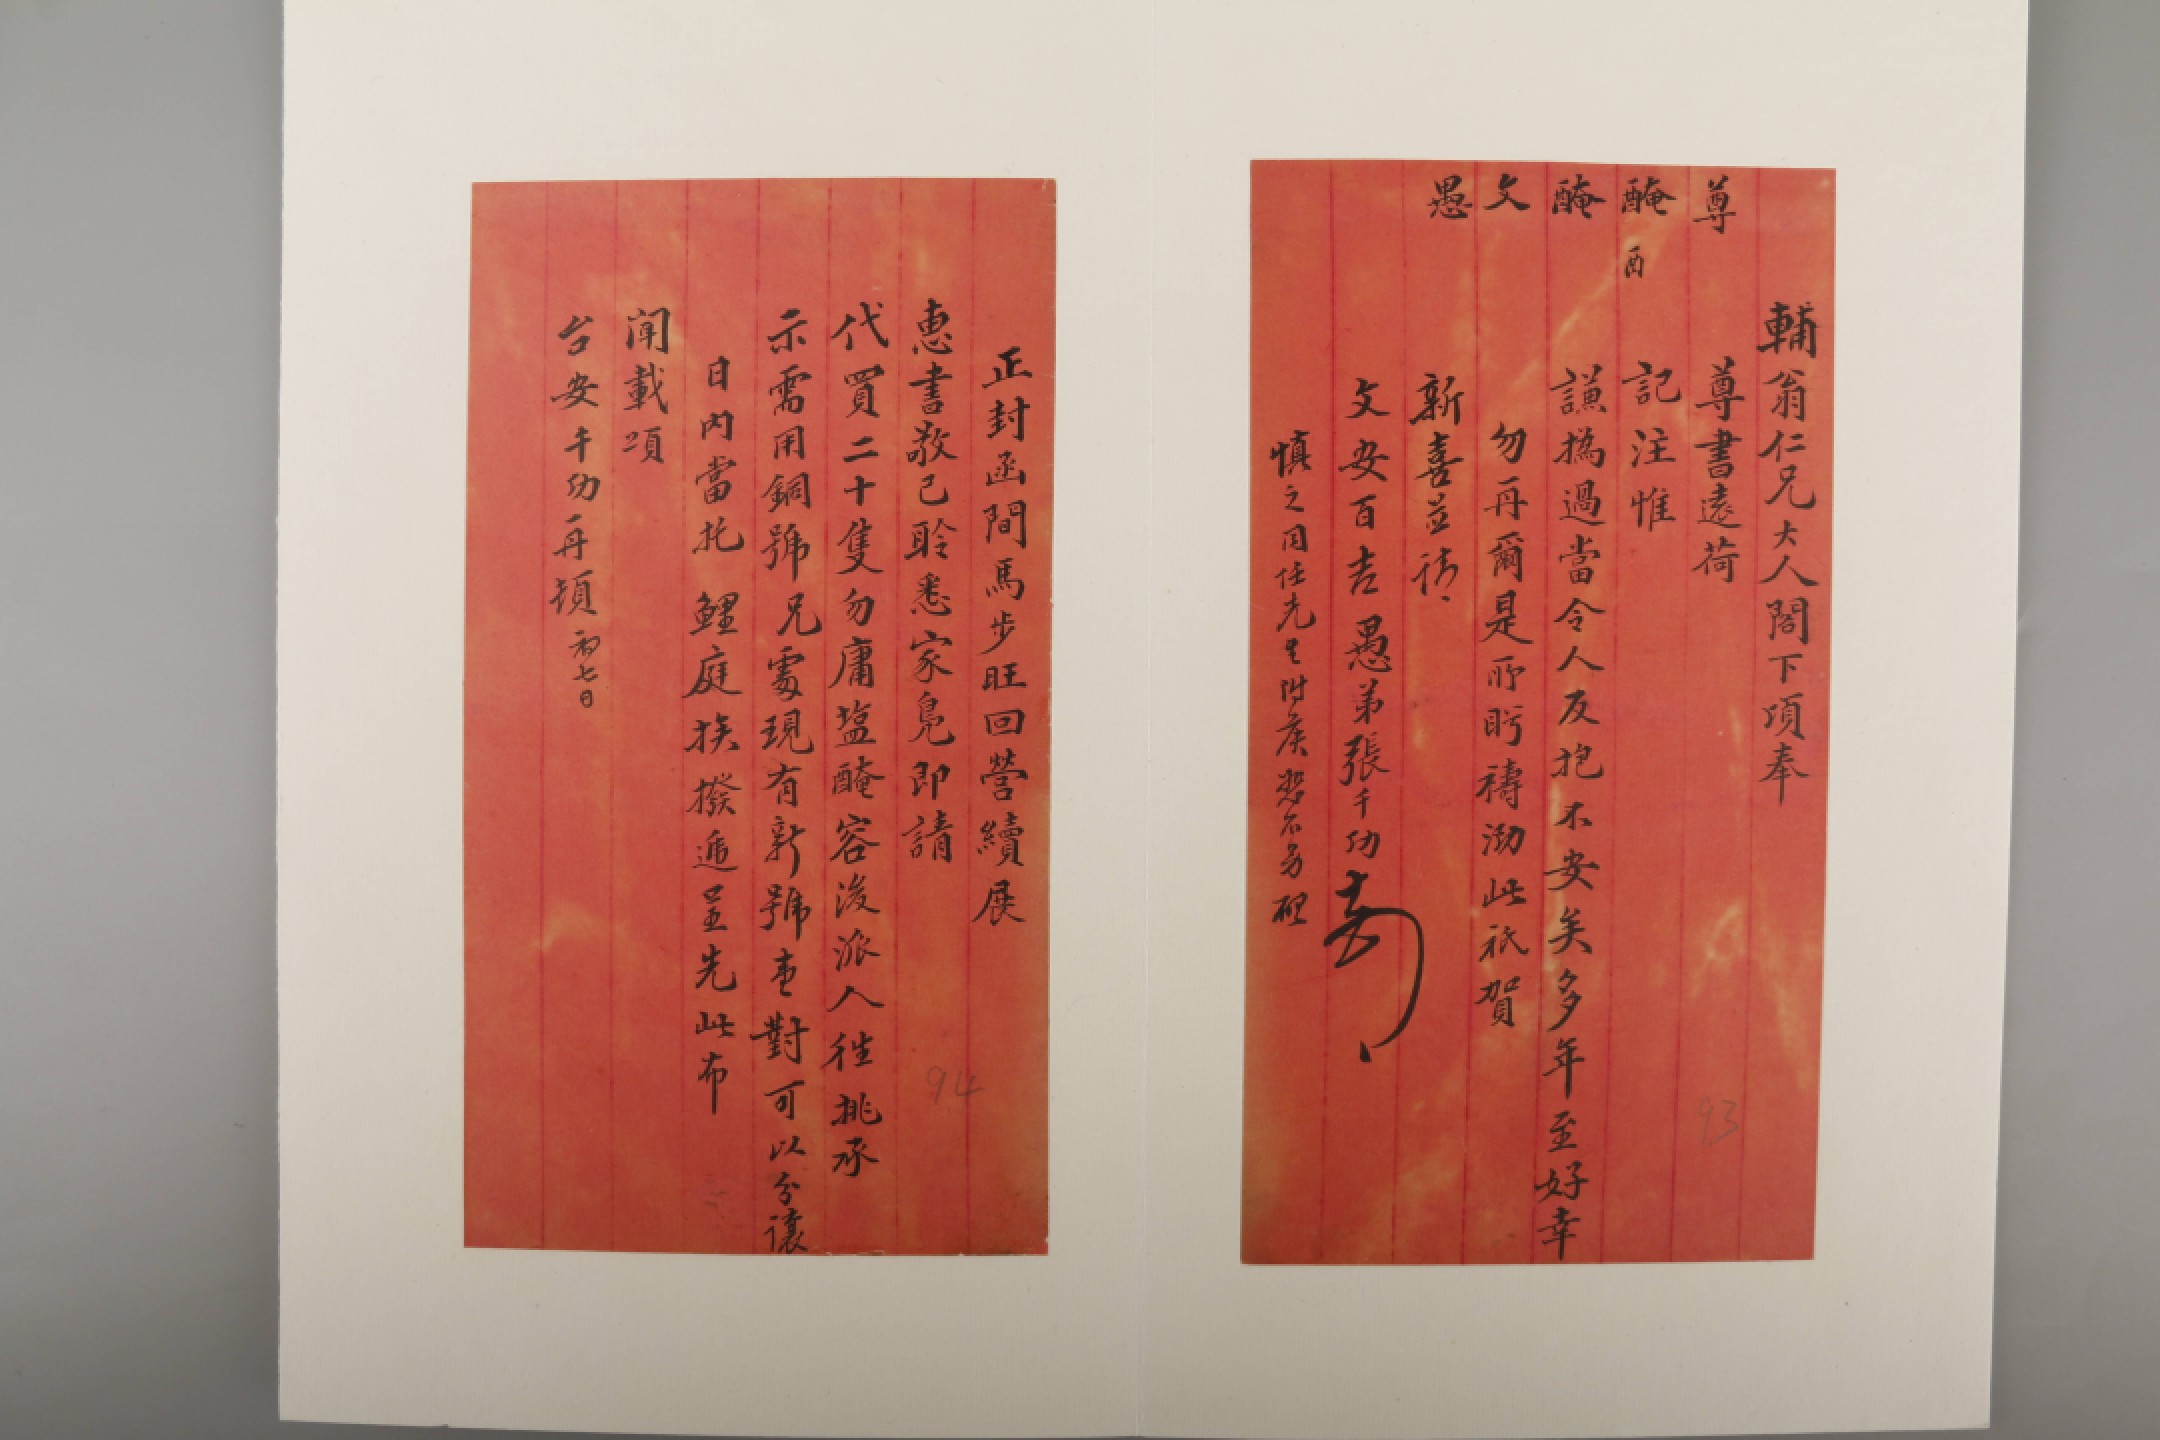 輔翁仁兄大人閣下項奉
尊
尊書遠荷
醃
酉
記注惟
醃
謙撝過當令人反抱不安矣多年至好幸
文
勿再爾是所盻禱泐此祇賀
愚
新喜並請
文安百吉 愚弟張千功
慎之同任先生附矦恕不另
93
正封函間馬步旺回營續展
惠書敬已聆悉家鳧即請
代買二十隻勿庸塩醃容後派人往挑承
示需用銅號兄處現有新號壹對可以分讓
日內當托 鯉庭挨撥遞呈先此布
聞載項
台安千功再頓 初七日
94